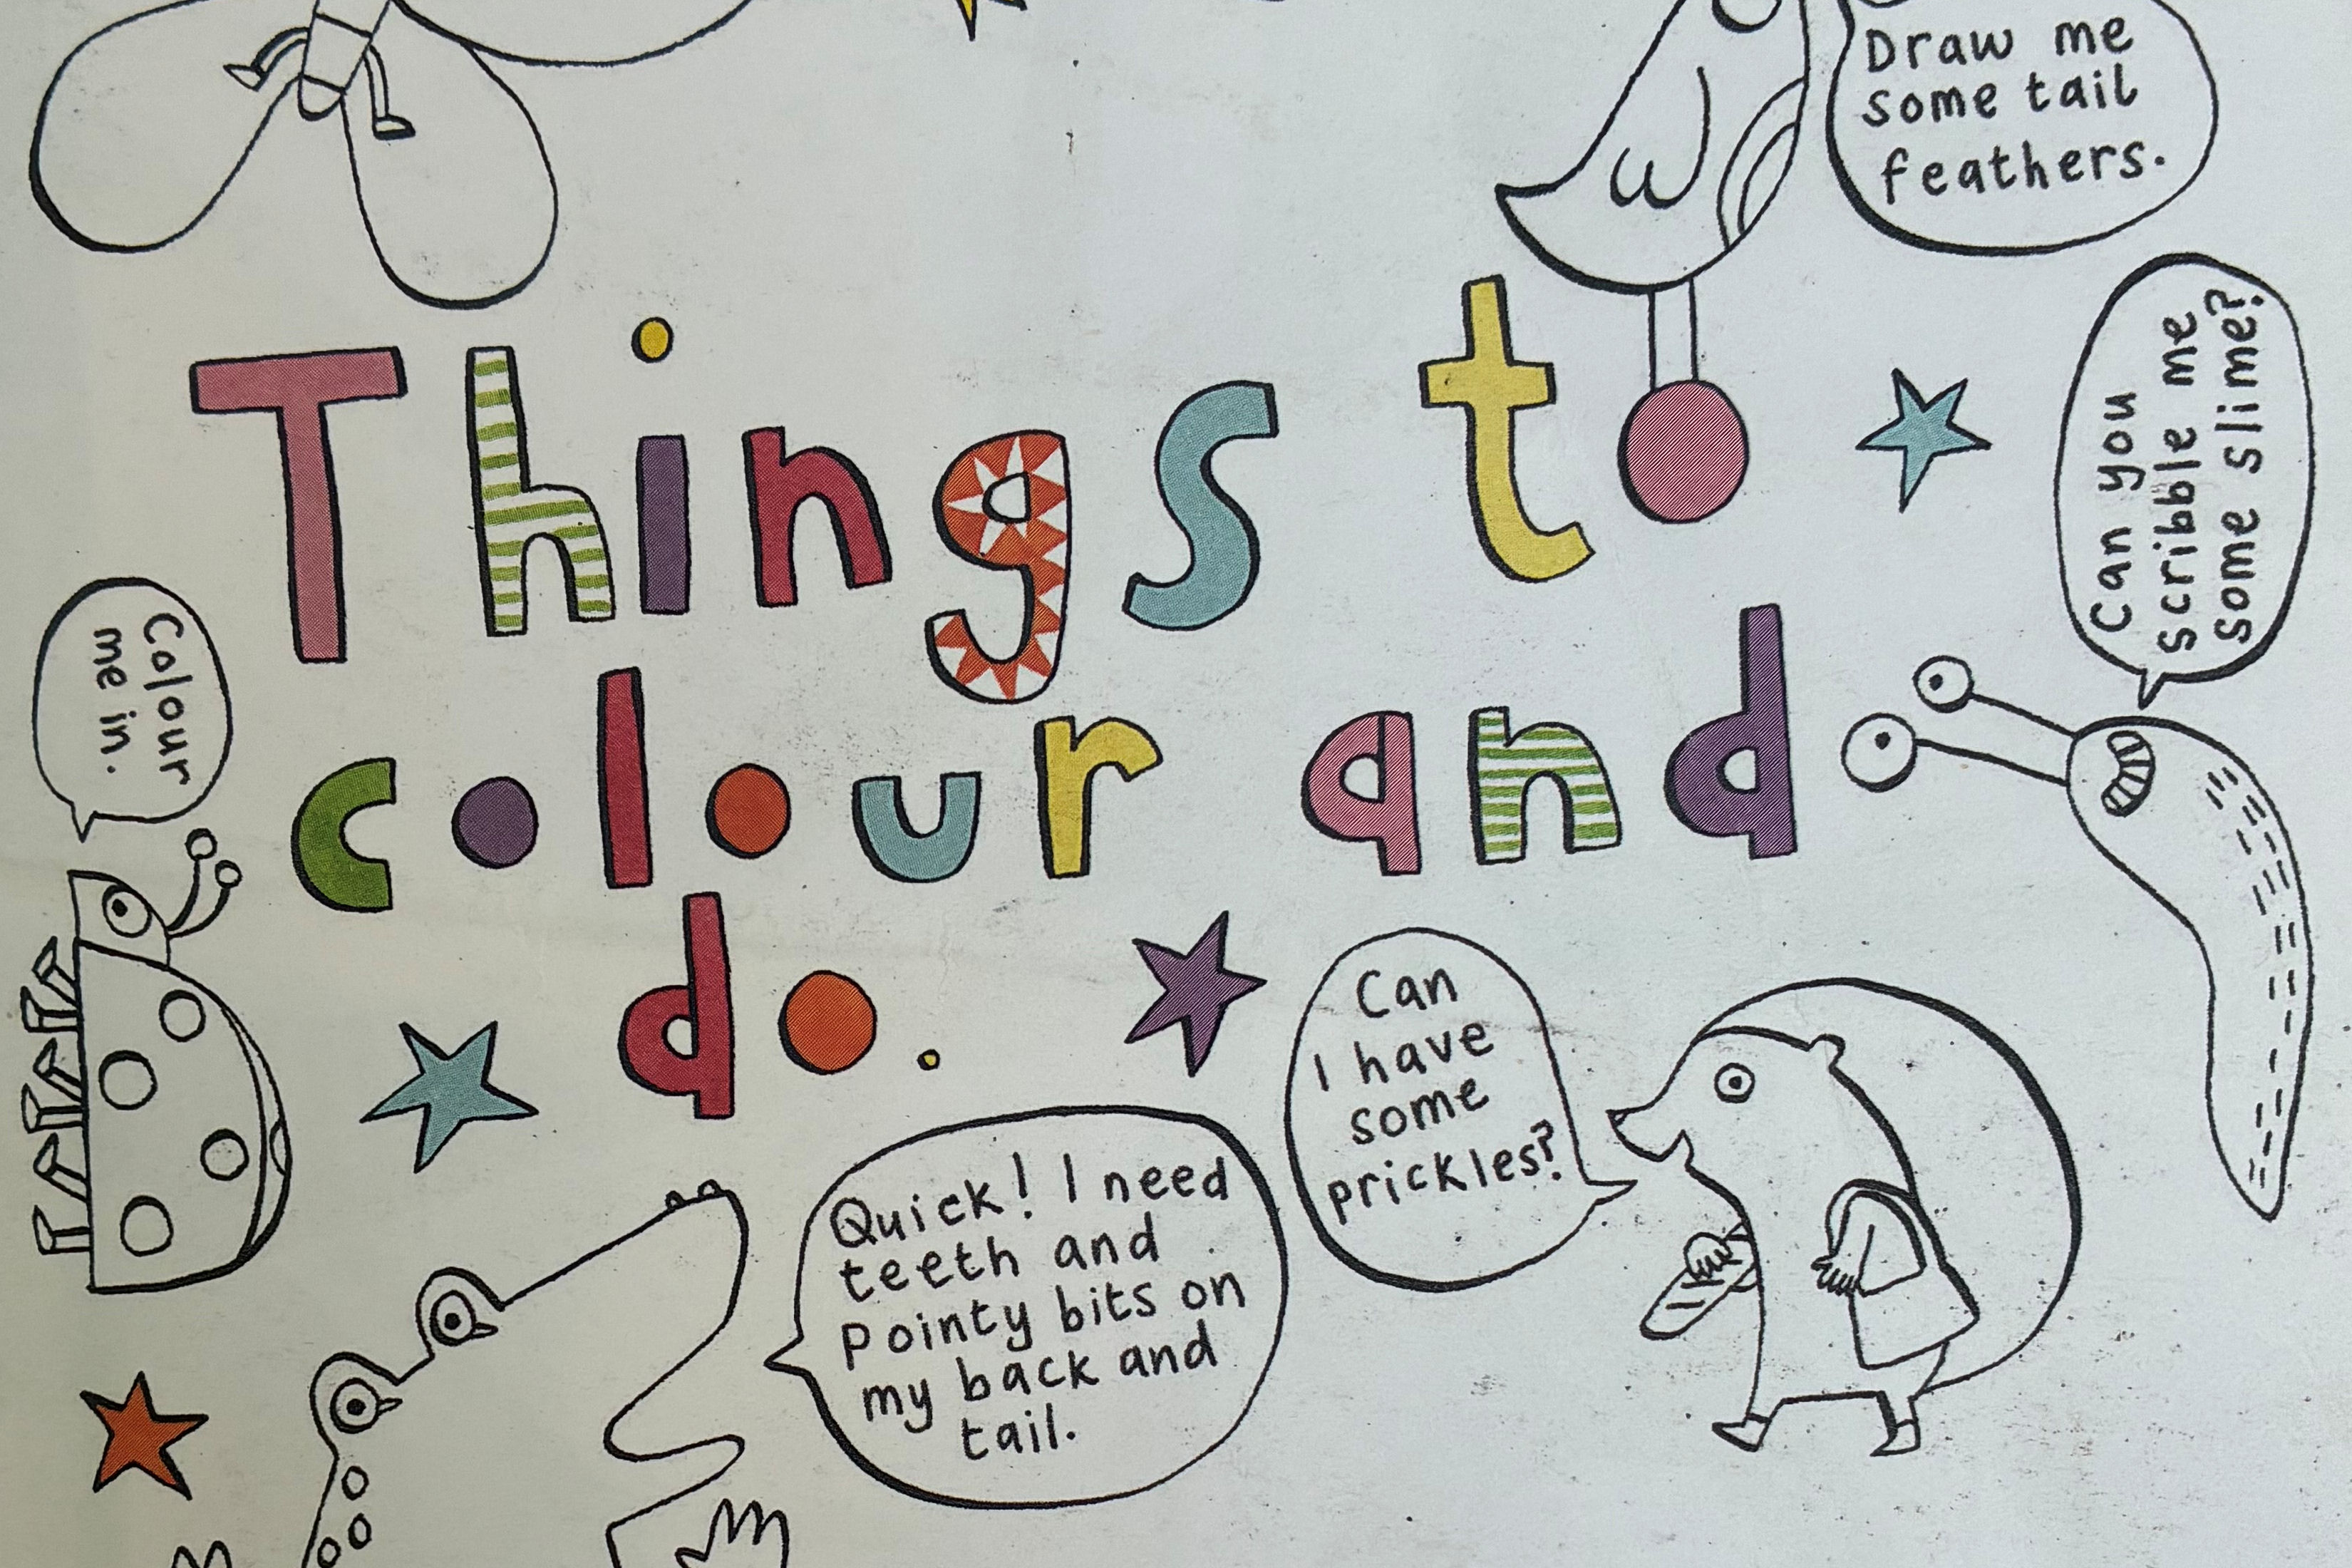 Draw me
some tail
feathers.
Things to
colour and
do.
Can you
scribble me
some slime?
Colour
me in.
Can
I have
some
prickles?
Quick! I need
teeth and
pointy bits on
my back and
tail.